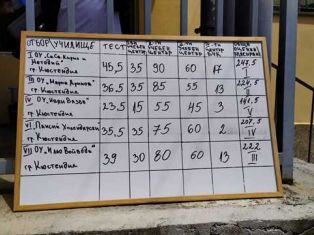 ОТБОР/УЧИЛИЩЕ ТЕСТ УЧЕБЕН ЦЕНТЪР УЧЕБЕН ЦЕНТЪР УЧЕБЕН ЦЕНТЪР
I ОУ „Св.Св. Кирил и Методий" гр. Кюстендил 45,5 35 90 60 17 247,5 I
III ОУ „Марин Дринов" гр. Кюстендил 36,5 35 85 55 13 224,5 II
IV ОУ „Иван Вазов" гр. Кюстендил 23,5 15 55 45 3 141,5 V
VI гр. Кюстендил 35,5 35 75 60 2 207,5 IV
VII ОУ „Ильо Войвода" гр. Кюстендил 39 30 80 60 13 222 III